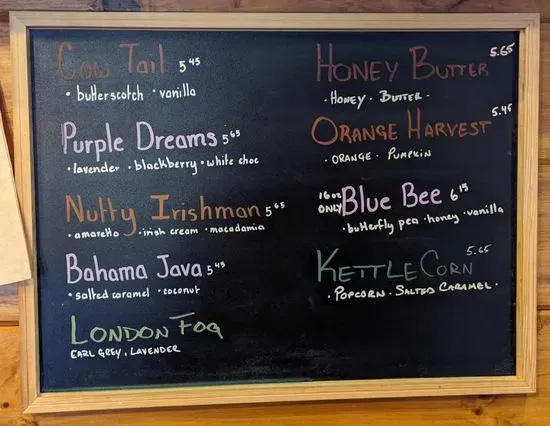 Cow Tail 5 45
• butterscotch • vanilla
Purple Dreams 5 65
• lavender • blackberry • white choc
Nutty Irishman 5 65
• amaretto • irish cream • macadamia
Bahama Java 5 45
• salted caramel • coconut
LONDON FOG
EARL GREY, LAVENDER
HONEY BUTTER 5.65
• HONEY • BUTTER •
ORANGE HARVEST 5.45
• ORANGE • PUMPKIN
16oz ONLY Blue Bee 6 15
• butterfly pea • honey • vanilla
KETTLE CORN 5.65
• POPCORN • SALTED CARAMEL •